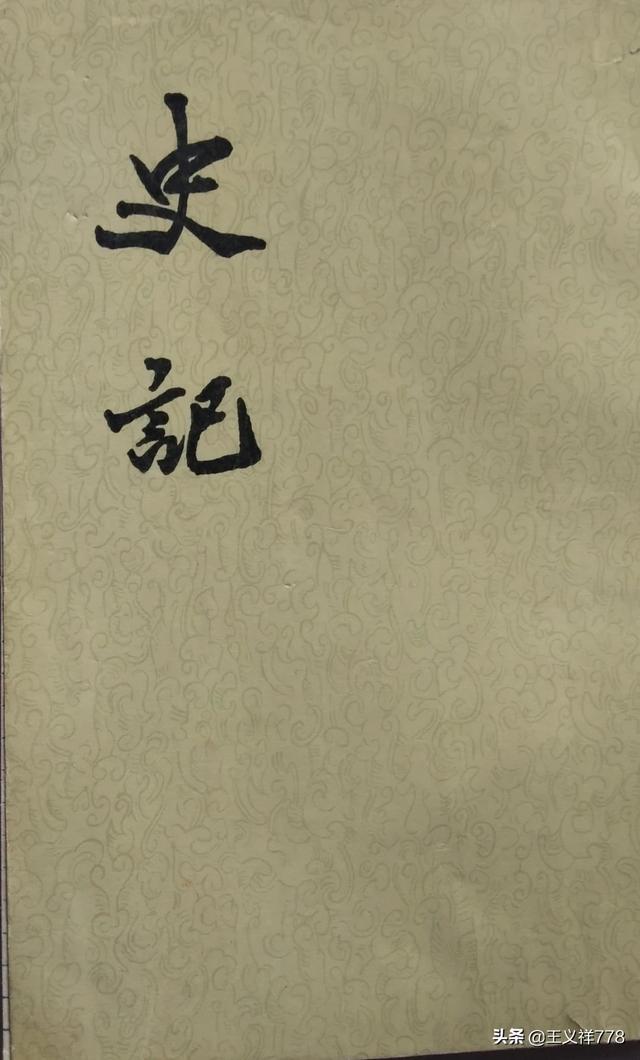 史
記
头条 @王义祥778